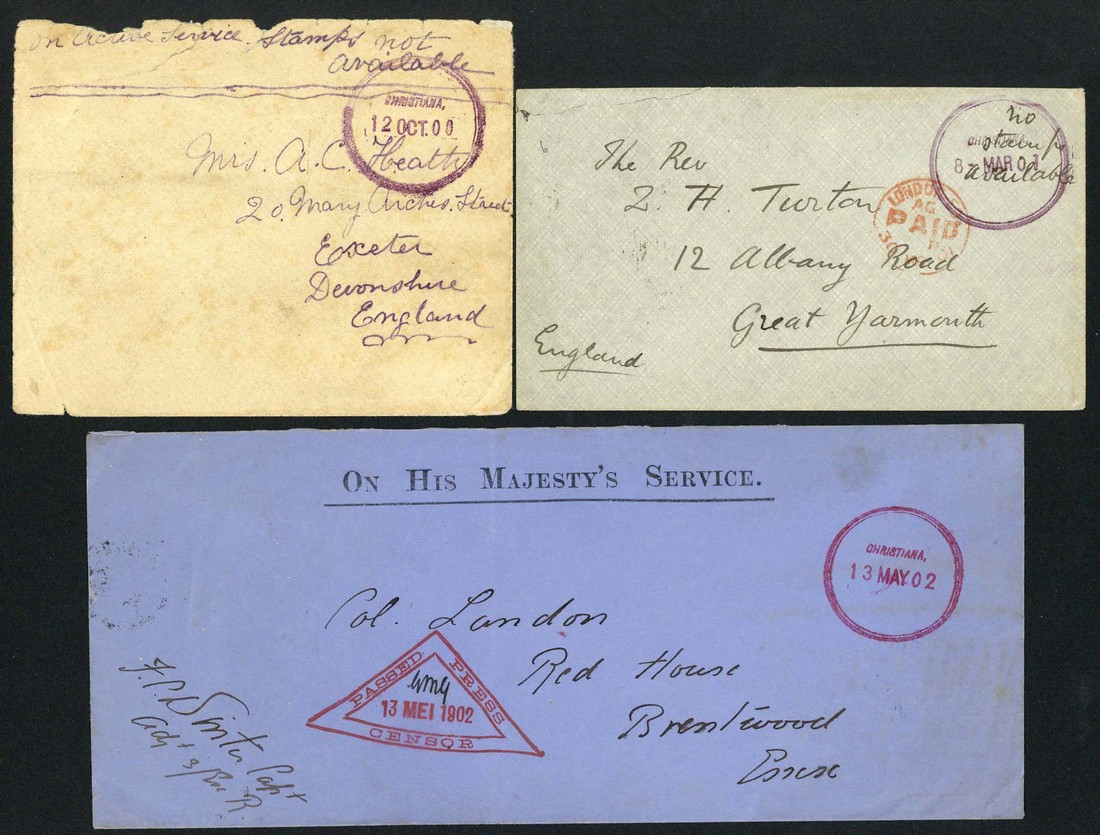 on Active Service. Stamps not
available
CHRISTIANA,
12 OCT. 00
Mrs. A. C. Heath
20, Mary Arches. Street
Exeter
Devonshire
England
no
stamps
available
CHRISTIANA,
8 MAR 01
The Rev
Z. H. Turton
12 Albany Road
Great Yarmouth
England
LONDON
AG
PAID
ON HIS MAJESTY'S SERVICE.
CHRISTIANA,
13 MAY. 02
Col. Landon
Red House
Brentwood
Essex
PASSED PRESS
13 MEI 1902
CENSOR
Capt
Adjt